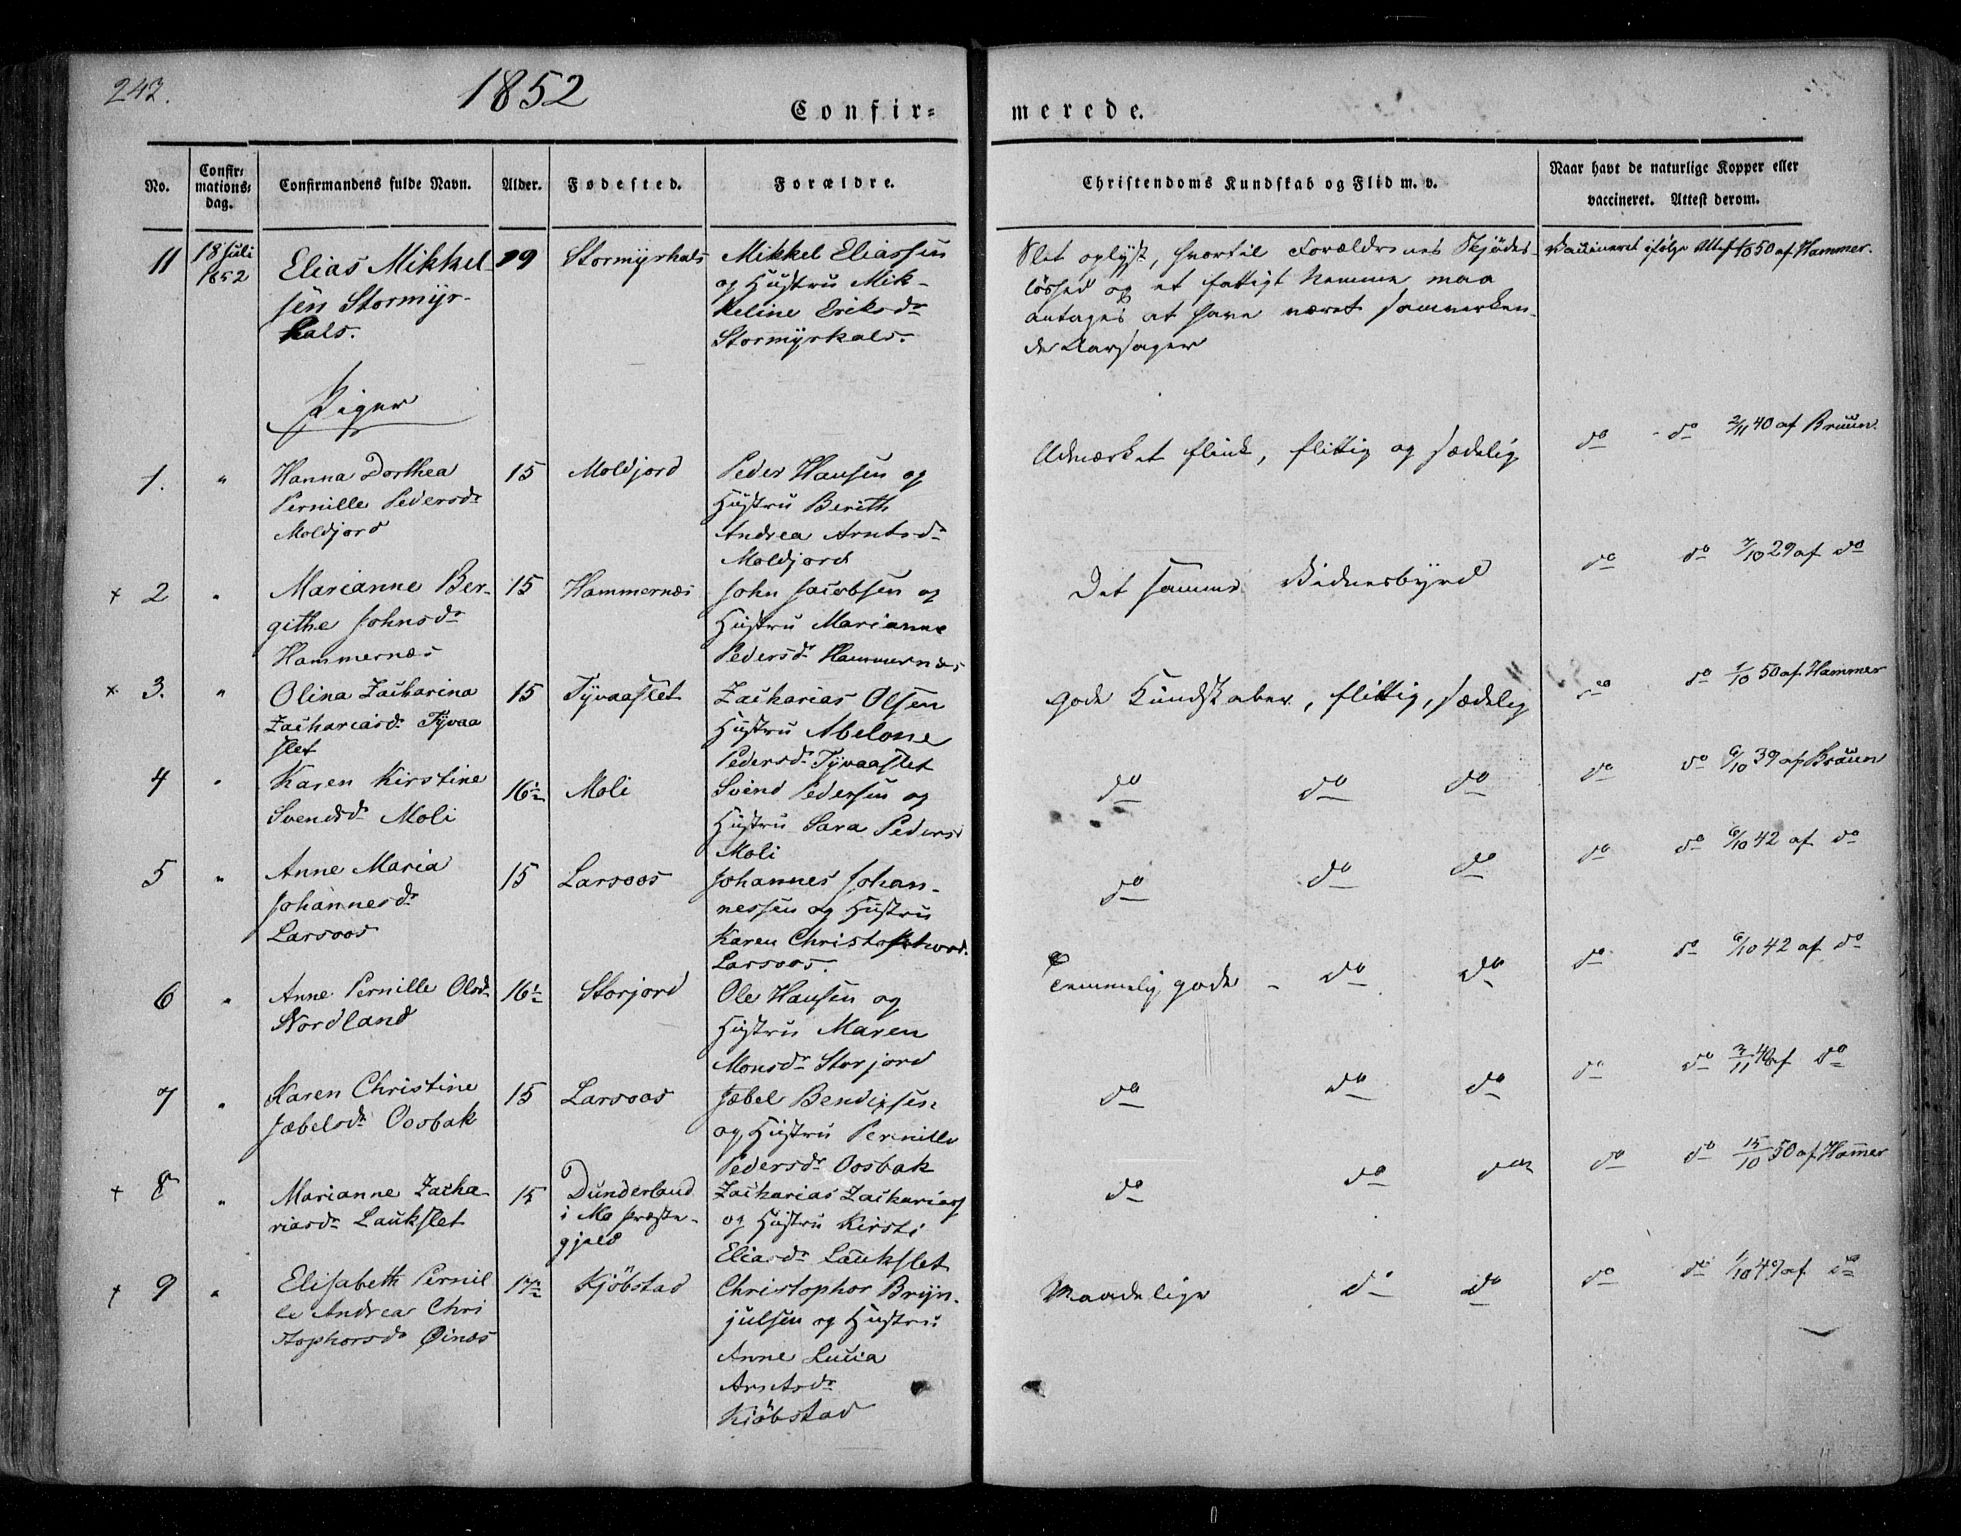 243.
1852
Confir=
merede.
No.
Confir-
mations-
dag.
Confirmandens fulde Navn.
Alder.
Fødested.
Forældre.
Christendoms Kundskab og Flid m. v.
Naar havt de naturlige Kopper eller
vaccineret. Attest derom.
11 18 Juli
1852
Elias Mikkel-
sen Stormyr-
hals.
19
Stormyrhals
Mikkel Eliassen
og Hustru Mik-
keline Eriksd.
Stormyrhals.
Slet oplyst, hvortil Forældrenes Skjødes-
løshed og et fattigt Nemme maa
antages at have været samvirken-
de Aarsager
Vaccineret ifølge Att. 50 af Hammer.
Piger
1. " Hanna Dorthea
Pernille Pedersd.
Moldjord
15 Moldjord
Peder Hansen og
Hustru Berith
Andrea Arntsd.
Moldjord
Udmærket flink, flittig og sædelig
do do 2/11 40 af Bruun.
+ 2 " Marianne Ber-
githe Johnsd.
Hammernæs
15 Hammernæs
John Jacobsen og
Hustru Marianne
Pedersd. Hammernæs
Det samme Vidnesbyrd
do do 7/10 29 af do
x 3. " Olina Zacharina
Zachariasd. Tyvaa
flet
15 Tyvaaflet
Zacharias Olsen
Hustru Abelone
Pedersd. Tyvaaflet
gode Kundskaber, flittig, sædelig
do do 1/10 50 af Hammer
4 " Karen Kirstine
Svendsd. Moli
16½ Moli
Svend Pedersen og
Hustru Sara Pedersd
Moli
do do do
do do 6/10 39 af Bruun
5 " Anne Maria
Johannesd.
Larsoos
15 Larsoos
Johannes Johan-
nessen og Hustru
Karen Christophersd.
Larsoos.
do do do
do do 6/10 42 af do
6 " Anne Pernille Olsd.
Nordland
16½ Storjord
Ole Hansen og
Hustru Maren
Monsd. Storjord
Temmelig gode - do do
do do 6/10 42 af do
7 " Karen Christine
Jæbelsd. Oosbak
15 Larsoos
Jæbel Bendixsen
og Hustru Pernille
Pedersd. Oosbak
do do do
do do 2/11 40 af do
+ 8 " Marianne Zacha-
riasd. Laukslet
15 Dunderland
i Mo Præste-
gjeld
Zacharias Zachariass
og Hustru Kirsti
Eliasd. Laukslet
do do do
do do 15/10 50 af Hammer
+ 9 " Elisabeth Pernil
le Andrea Chri
stophersd. Øinæs
17½ Kjöbstad
Christopher Bryn-
julsen og Hustru
Anne Lucia
Arntsd.
Kjöbstad
Maadelige do do
do do 1/10 49 af do